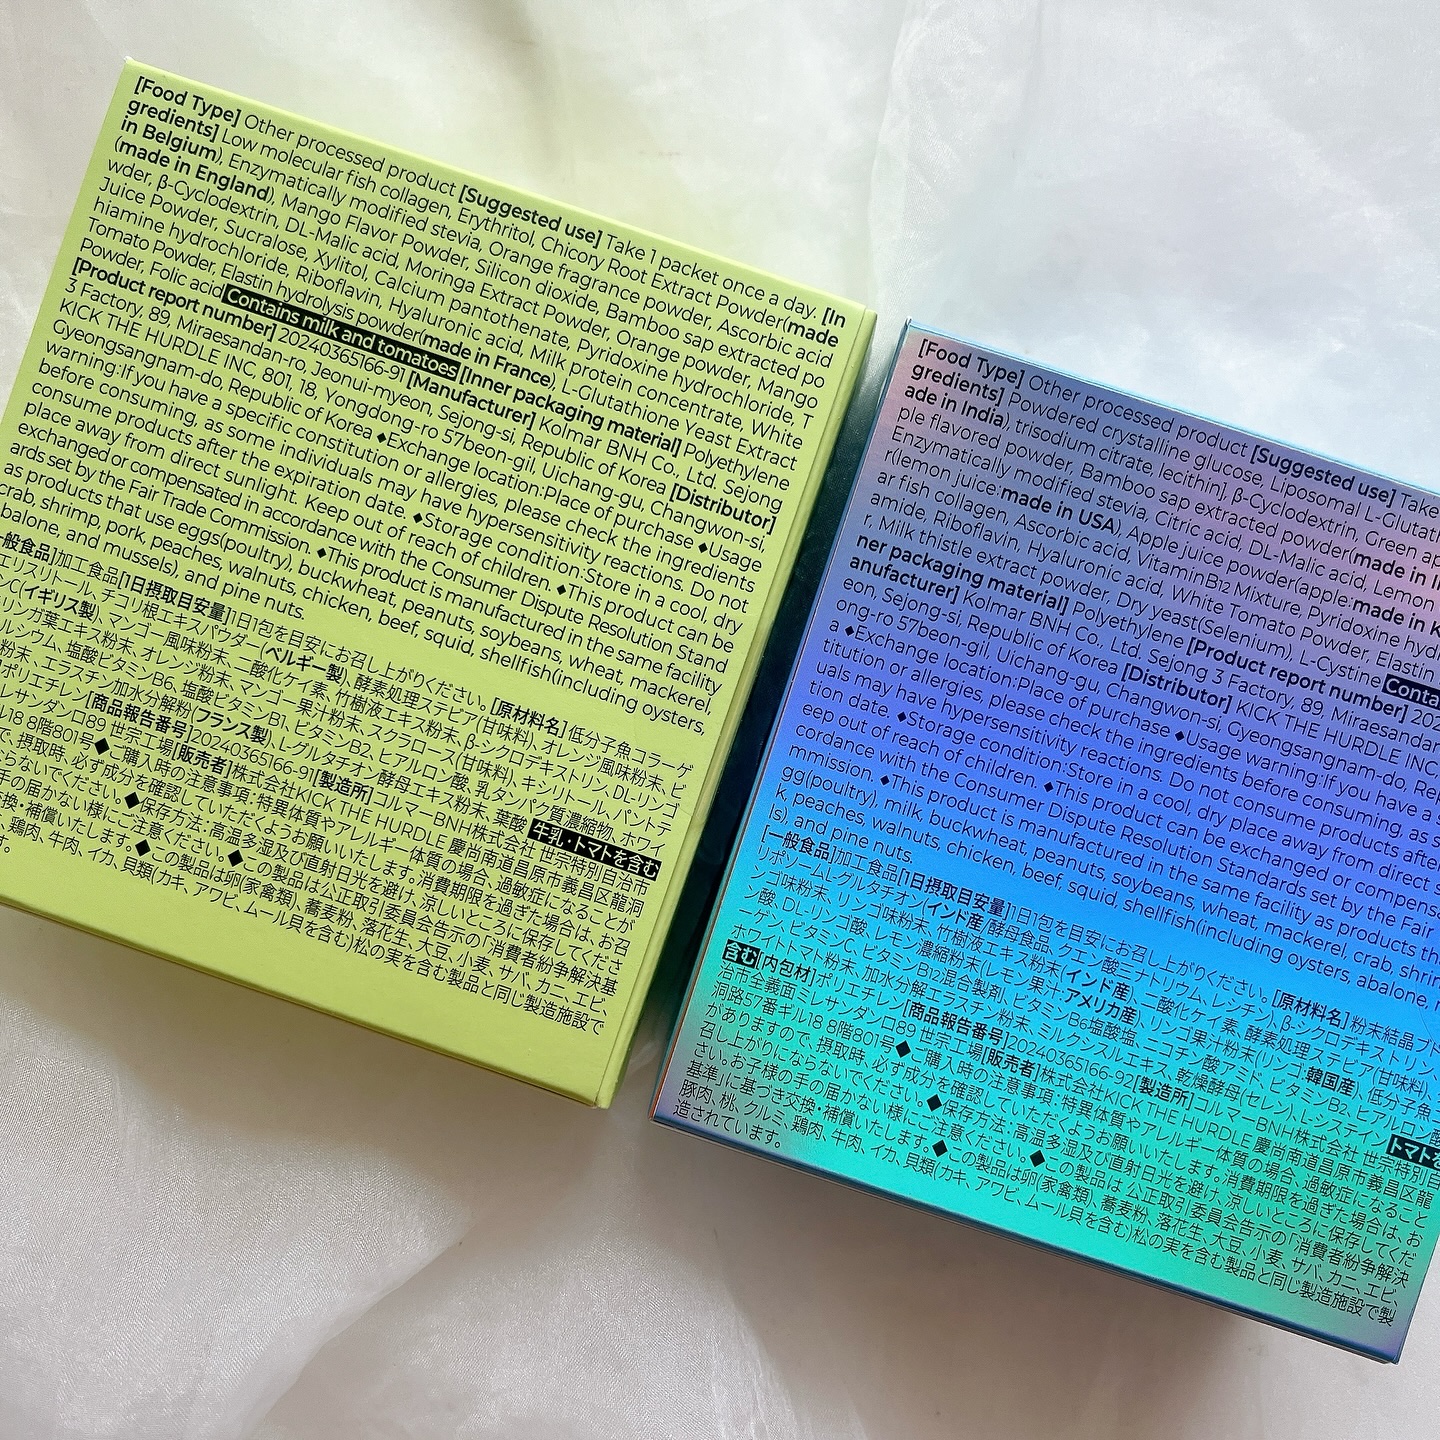 [Food Type] Other processed product [Suggested use] Take 1 packet once a day. [In
gredients] Low molecular fish collagen, Erythritol, Chicory Root Extract Powder(made
in Belgium), Enzymatically modified stevia, Orange fragrance powder, Ascorbic acid
(made in England), Mango Flavor Powder, Silicon dioxide, Bamboo sap extracted po
wder, β-Cyclodextrin, DL-Malic acid, Moringa Extract Powder, Orange powder, Mango
Juice Powder, Sucralose, Xylitol, Calcium pantothenate, Pyridoxine hydrochloride, T
hiamine hydrochloride, Riboflavin, Hyaluronic acid, Milk protein concentrate, White
Tomato Powder, Elastin hydrolysis powder(made in France), L-Glutathione Yeast Extract
Powder, Folic acid Contains milk and tomatoes [Inner packaging material] Polyethylene
[Product report number] 20240365166-91 [Manufacturer] Kolmar BNH Co., Ltd. Sejong
3 Factory, 89, Miraesandan-ro, Jeonui-myeon, Sejong-si, Republic of Korea [Distributor]
KICK THE HURDLE INC. 801, 18, Yongdong-ro 57beon-gil, Uichang-gu, Changwon-si,
Gyeongsangnam-do, Republic of Korea ◆Exchange location:Place of purchase ◆Usage
warning:If you have a specific constitution or allergies, please check the ingredients
before consuming, as some individuals may have hypersensitivity reactions. Do not
consume products after the expiration date. ◆Storage condition:Store in a cool, dry
place away from direct sunlight. Keep out of reach of children. ◆This product can be
exchanged or compensated in accordance with the Consumer Dispute Resolution Stand
ards set by the Fair Trade Commission. ◆This product is manufactured in the same facility
as products that use eggs(poultry), buckwheat, peanuts, soybeans, wheat, mackerel,
crab, shrimp, pork, peaches, walnuts, chicken, beef, squid, shellfish(including oysters,
balone, and mussels), and pine nuts.
一般食品]加工食品[1日摂取目安量]1日1包を目安にお召し上がりください。[原材料名]低分子魚コラーゲ
エリスリトール、チコリ根エキスパウダー(ベルギー製)、酵素処理ステビア(甘味料)、オレンジ風味粉末、ビ
ンC(イギリス製)、マンゴー風味粉末、二酸化ケイ素、竹樹液エキス粉末、β-シクロデキストリン、DL-リンゴ
リンガ葉エキス粉末、オレンジ粉末、マンゴー果汁粉末、スクラロース(甘味料)、キシリトール、パントテ
ルシウム、塩酸ビタミンB6、塩酸ビタミンB1、ビタミンB2、ヒアルロン酸、乳タンパク質濃縮物、ホワイ
粉末、エラスチン加水分解粉(フランス製)、Lグルタチオン酵母エキス粉末、葉酸 牛乳・トマトを含む
]ポリエチレン[商品報告番号]20240365166-91[製造所]コルマーBNH株式会社 世宗特別自治市
レサンダンロ89 世宗工場[販売者]株式会社KICK THE HURDLE 慶尚南道昌原市義昌区龍洞
ル18 8階801号◆ご購入時の注意事項:特異体質やアレルギー体質の場合、過敏症になることが
で、摂取時、必ず成分を確認していただくようお願いいたします。消費期限を過ぎた場合は、お召
らないでください。◆保存方法:高温多湿及び直射日光を避け、涼しいところに保存してくださ
手の届かない様にご注意ください。◆この製品は公正取引委員会告示の「消費者紛争解決基
交換・補償いたします。◆この製品は卵(家禽類)、蕎麦粉、落花生、大豆、小麦、サバ、カニ、エビ、
、鶏肉、牛肉、イカ、貝類(カキ、アワビ、ムール貝を含む)松の実を含む製品と同じ製造施設で
す。
[Food Type] Other processed product [Suggested use] Take
gredients] Powdered crystalline glucose, Liposomal L-Glutath
ade in India), trisodium citrate, lecithin], β-Cyclodextrin, Green ap
ple flavored powder, Bamboo sap extracted powder(made in In
Enzymatically modified stevia, Citric acid, DL-Malic acid, Lemon
r(lemon juice:made in USA), Apple juice powder(apple:made in K
ar fish collagen, Ascorbic acid, VitaminB12 Mixture, Pyridoxine hydr
amide, Riboflavin, Hyaluronic acid, White Tomato Powder, Elastin
r, Milk thistle extract powder, Dry yeast(Selenium), L-Cystine Conta
ner packaging material] Polyethylene [Product report number] 202
anufacturer] Kolmar BNH Co., Ltd. Sejong 3 Factory, 89, Miraesandan
eon, Sejong-si, Republic of Korea [Distributor] KICK THE HURDLE INC
ong-ro 57beon-gil, Uichang-gu, Changwon-si, Gyeongsangnam-do, Rep
a ◆Exchange location:Place of purchase ◆Usage warning:If you have a s
titution or allergies, please check the ingredients before consuming, as s
uals may have hypersensitivity reactions. Do not consume products after
tion date. ◆Storage condition:Store in a cool, dry place away from direct s
eep out of reach of children. ◆This product can be exchanged or compensa
cordance with the Consumer Dispute Resolution Standards set by the Fair
mmission. ◆This product is manufactured in the same facility as products th
gg(poultry), milk, buckwheat, peanuts, soybeans, wheat, mackerel, crab, shrim
k, peaches, walnuts, chicken, beef, squid, shellfish(including oysters, abalone,
ls), and pine nuts.
[一般食品]加工食品[1日摂取目安量]1日1包を目安にお召し上がりください。[原材料名]粉末結晶ブ
リポソームLグルタチオン(インド産/酵母食品、クエン酸三ナトリウム、レシチン)、β-シクロデキストリン、
ンゴ味粉末、リンゴ味粉末、竹樹液エキス粉末(インド産)、二酸化ケイ素、酵素処理ステビア(甘味料)、
ン酸、DL-リンゴ酸、レモン濃縮粉末(レモン果汁:アメリカ産)、リンゴ果汁粉末(リンゴ:韓国産)、低分子魚
ーゲン、ビタミンC、ビタミンB12混合製剤、ビタミンB6塩酸塩、ニコチン酸アミド、ビタミンB2、ヒアルロン酸
ホワイトトマト粉末、加水分解エラスチン粉末、ミルクシスルエキス、乾燥酵母(セレン)、Lシステイン トマトを
含む[内包材]ポリエチレン[商品報告番号]20240365166-92[製造所]コルマーBNH株式会社 世宗特別自
治市全義面ミレサンダンロ89 世宗工場[販売者]株式会社KICK THE HURDLE 慶尚南道昌原市義昌区龍
洞路57番ギル18 8階801号◆ご購入時の注意事項:特異体質やアレルギー体質の場合、過敏症になること
がありますので、摂取時、必ず成分を確認していただくようお願いいたします。消費期限を過ぎた場合は、お
召し上がりにならないでください。◆保存方法:高温多湿及び直射日光を避け、涼しいところに保存してくだ
さい。お子様の手の届かない様にご注意ください。◆この製品は 公正取引委員会告示の「消費者紛争解決
基準」に基づき交換・補償いたします。◆この製品は卵(家禽類)、蕎麦粉、落花生、大豆、小麦、サバ、カニ、エビ、
豚肉、桃、クルミ、鶏肉、牛肉、イカ、貝類(カキ、アワビ、ムール貝を含む)松の実を含む製品と同じ製造施設で製
造されています。